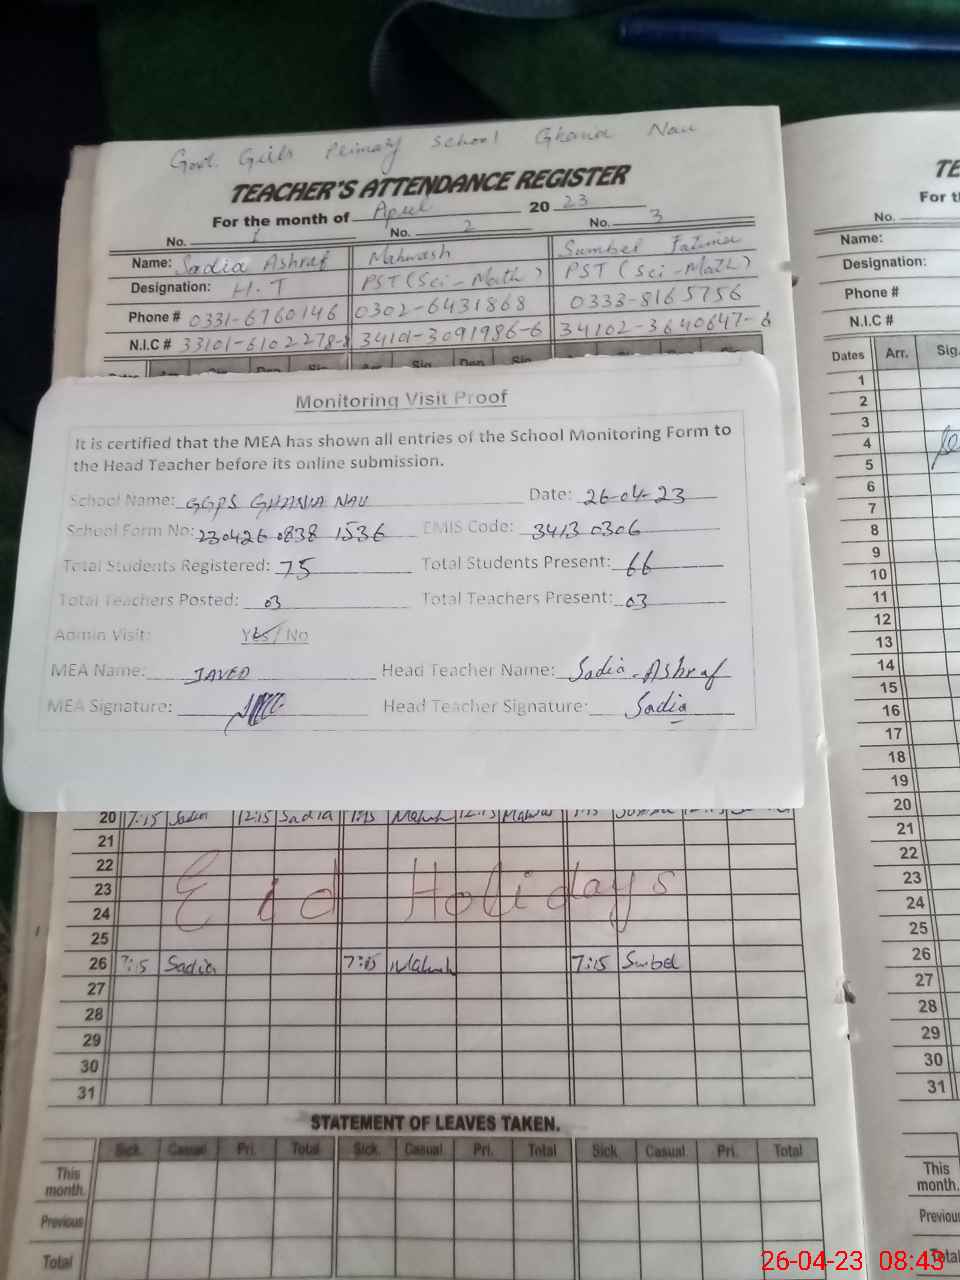 Govt. Girls Primary School Ghania Nau
TEACHER'S ATTENDANCE REGISTER
For the month of April 2023
No. 1 No. 2 No. 3
Name: Sadia Ashraf Mahwash Sumbel Fatima
Designation: H.T PST (Sci-Math) PST (Sci-Math)
Phone # 0331-6760146 0302-6431868 0333-8165756
N.I.C # 33101-6102278-8 34101-3091986-6 34102-3640647-6
Monitoring Visit Proof
It is certified that the MEA has shown all entries of the School Monitoring Form to
the Head Teacher before its online submission.
School Name: GGPS GHANIA NAU Date: 26-04-23
School Form No: 230426 0838 1536 EMIS Code: 3413 0306
Total Students Registered: 75 Total Students Present: 66
Total Teachers Posted: 03 Total Teachers Present: 03
Admin Visit: Yes/No
MEA Name: JAVED Head Teacher Name: Sadia Ashraf
MEA Signature: Head Teacher Signature: Sadia
20 7:15 Sadia 12:15 Sadia
21
22
23 Eid Holidays
24
25
26 7:15 Sadia 7:15 Mahwash 7:15 Sumbel
27
28
29
30
31
STATEMENT OF LEAVES TAKEN.
Sick Casual Pri. Total Sick. Casual Pri. Total Sick Casual Pri. Total
This
month.
Previous
Total
TE
For th
No.
Name:
Designation:
Phone #
N.I.C #
Dates Arr. Sig.
1
2
3
4
5
6
7
8
9
10
11
12
13
14
15
16
17
18
19
20
21
22
23
24
25
26
27
28
29
30
31
This
month.
Previou
Total
26-04-23 08:43